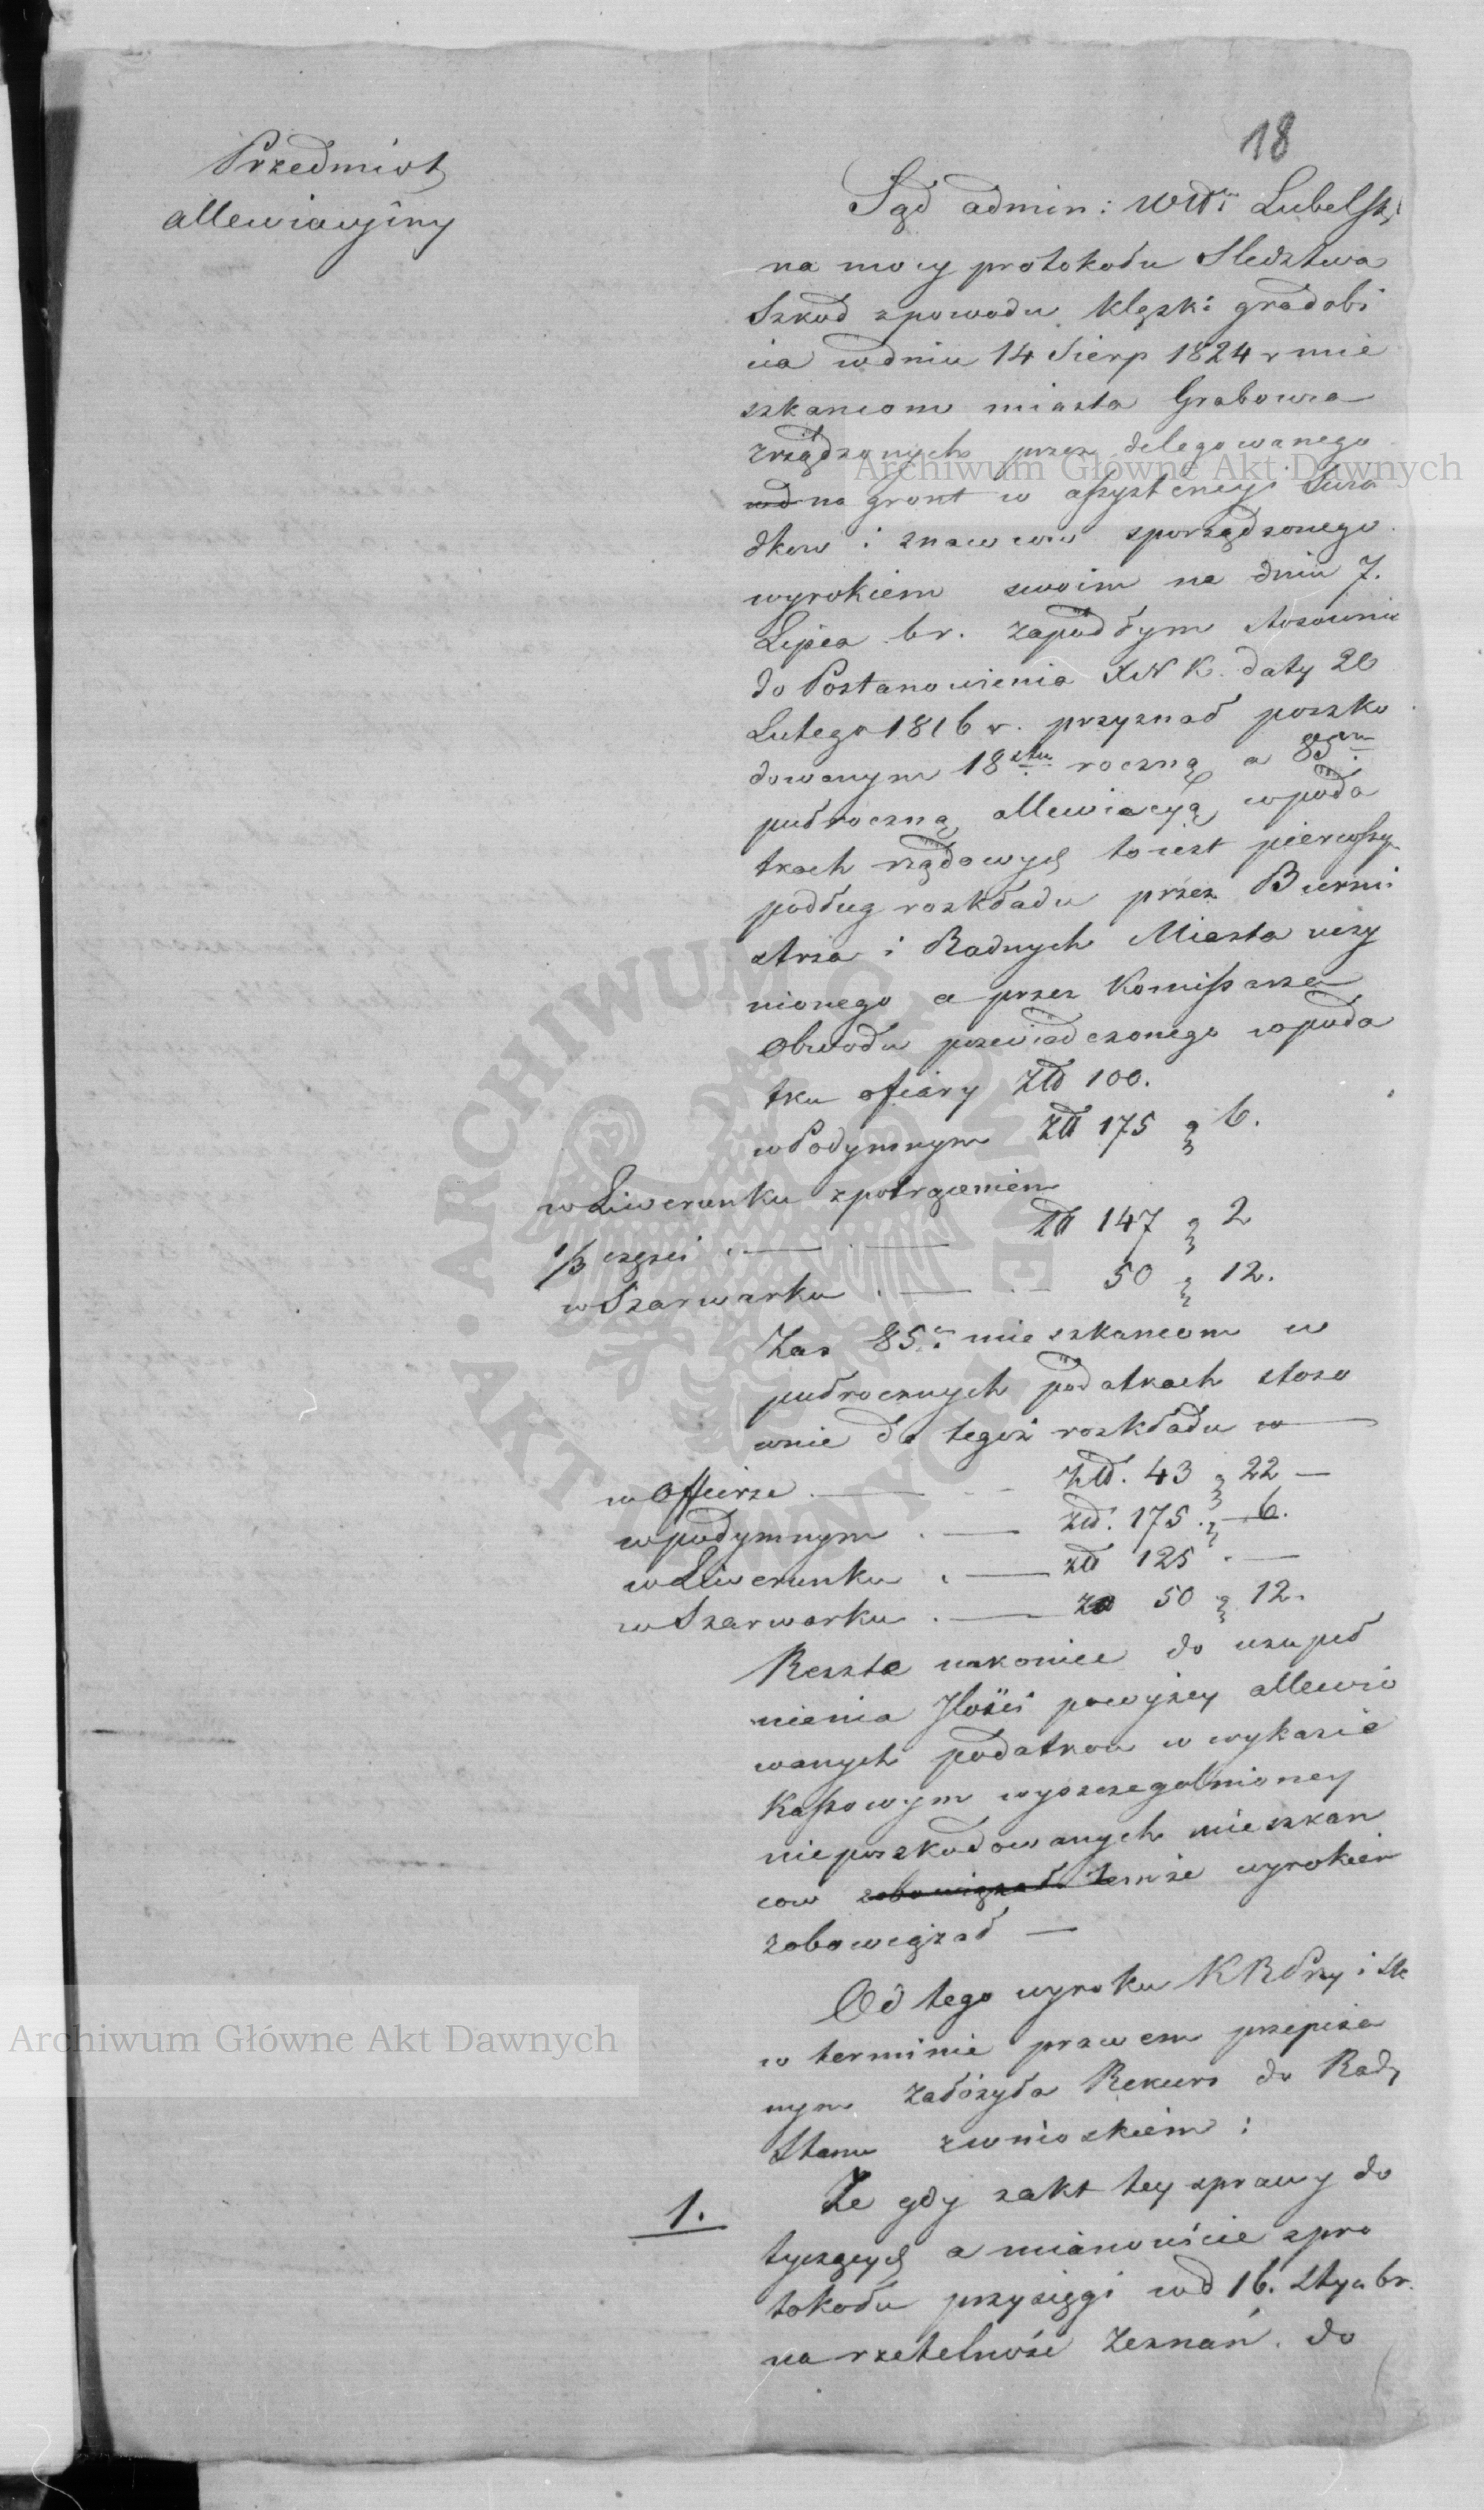 18
Przedmiot
allewiacyiny
Sąd admin: Wdz Lubelski
na mocy protokołu Sledztwa
Szkod zpowodu klęski gradobi
cia wdniu 14 Sierp 1824 r mie
szkancom miasta Grabowca
zrządzonych przez delegowanego
na gront w assystencyi Swia
dkow i znawcow sporządzonego
wyrokiem swoim na dniu 7.
Lipca br. zapadłym stosownie
do Postanowienia XNK. daty 20
Lutego 1816 r. przyznał poszko
dowanym 18stu roczną a 85ciu
pułroczną allewiacyą wpoda
tkach rządowych to iest pierwszy
podług rozkładu przez Burmi
strza i Radnych Miasta uczy
nionego a przez Komissarza
Obwodu poswiadczonego wpoda
tku ofiary Złł 100.
w Podymnym Złł 175 g 6.
w Liwerunku zpotrąceniem
1/3 częsci . — . — Złł 147 g 2
w Szarwarku . — . — 50 g 12.
Zas 85u mieszkancom w
pułrocznych podatkach stoso
wnie do tegoż rozkładu w —
w Offierze . — Złł. 43 g 22 —
w podymnym . — złł. 175 . g 6.
w Liwerunku . — złł 125 . —
w Szarwarku . — zł 50 g 12.
Resztę nakoniec do uzupeł
nienia Jlości powyżey allewio
wanych podatkow w wykazie
Kassowym wyszczegolnioney
nieposzkodowanych mieszkan
cow zobowiązał temże wyrokiem
zobowiązał —
Od tego wyroku KRPrzy i Sk
w terminie prawem przepisa
nym założyła Rekurs do Rady
Stanu zwnioskiem :
1. Że gdy zakt tey sprawy do
tyczących a mianowicie zpro
tokołu przysięgi wd 16. Stycz br.
na rzetelność Zeznań do
Archiwum Główne Akt Dawnych
Archiwum Główne Akt Dawnych
ARCHIWUM GŁÓWNE · AKT DAWNYCH ·